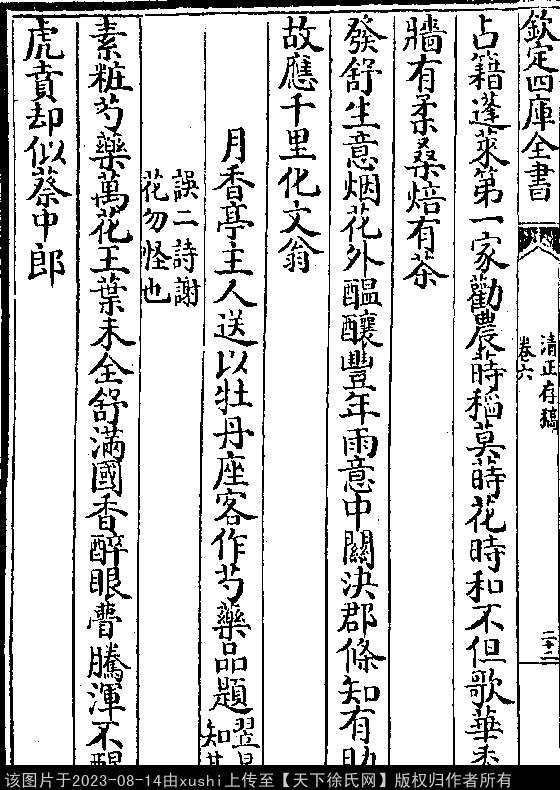 欽定四庫全書
清正存稿
卷六
二十二
占籍蓬萊第一家勸農蒔稻莫蒔花時和不但歌華
牆有柔桑焙有茶
發舒生意烟花外醖釀豐年雨意中關決郡條知有
故應千里化文翁
月香亭主人送以牡丹座客作芍藥品題翌
知
誤二詩謝
花勿怪也
素粧芍藥萬花王葉未全舒滿國香醉眼瞢騰渾不
虎賁却似蔡中郎
该图片于2023-08-14由xushi上传至【天下徐氏网】版权归作者所有